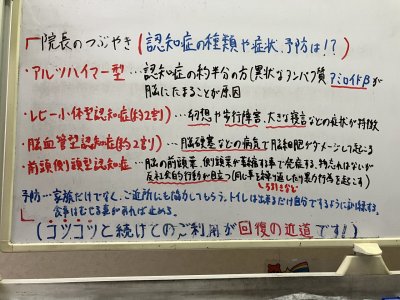 「院長のつぶやき（認知症の種類や症状、予防は！？）
・アルツハイマー型…認知症の約半分の方（異状なタンパク質アミロイドβが
脳にたまることが原因
・レビー小体型認知症（約2割）…幻想や歩行障害、大きな寝言などの症状が特徴
・脳血管型認知症（約2割）…脳頭塞などの病気で脳細胞がダメージして起こる
・前頭側頭型認知症…脳の前頭葉、側頭葉が萎縮する事で発症する。物忘れはないが
反社会的行動が目立つ（同じ事を繰り返したり暴力行為を起こす）
予防…家族だけでなく、ご近所にも協力してもらう。トイレは出来るだけ自分でするように訓練する。
食事はむせる事があれば止める。
（コツコツと続けてのご利用が回復の近道です！）